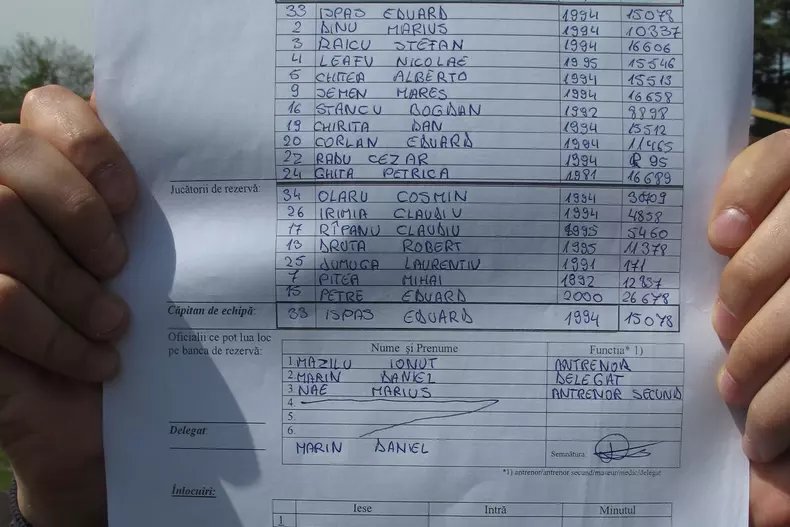 33 ISPAS EDUARD 1994 15078
2 DINU MARIUS 1994 10337
3 RAICU STEFAN 1994 16606
4 LEAFU NICOLAE 1995 15546
6 CHITEA ALBERTO 1994 15513
9 JEMEN MARES 1994 16658
16 STANCU BOGDAN 1992 8898
19 CHIRITA DAN 1994 15512
20 CORLAN EDUARD 1994 11465
22 RADU CEZAR 1994 95
24 GHITA PETRICA 1981 16689
Jucătorii de rezervă:
34 OLARU COSMIN 1994
26 IRIMIA CLAUDIU 1994 4858
17 RÎPANU CLAUDIU 1995 5460
13 DRUTA ROBERT 1995 11378
25 DUMUGA LAURENTIU 1991 171
7 PITEA MIHAI 1992
15 PETRE EDUARD 2000 26678
Căpitan de echipă: 33 ISPAS EDUARD 1994 15078
Oficialii ce pot lua loc
pe banca de rezervă:
Nume și Prenume Functia* 1)
1 MAZILU IONUT ANTRENOR
2 MARIN DANIEL DELEGAT
3 NAE MARIUS ANTRENOR SECUND
4.
5.
6.
Delegat MARIN DANIEL Semnătura:
*1) antrenor/antrenor secund/maseur/medic/delegat
Înlocuiri:
Iese Intră Minutul
1